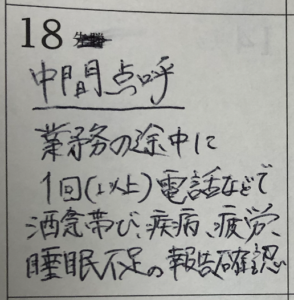 18
中間点呼
業務の途中に
1回(以上)電話などで
酒気帯び、疾病、疲労、
睡眠不足の報告確認